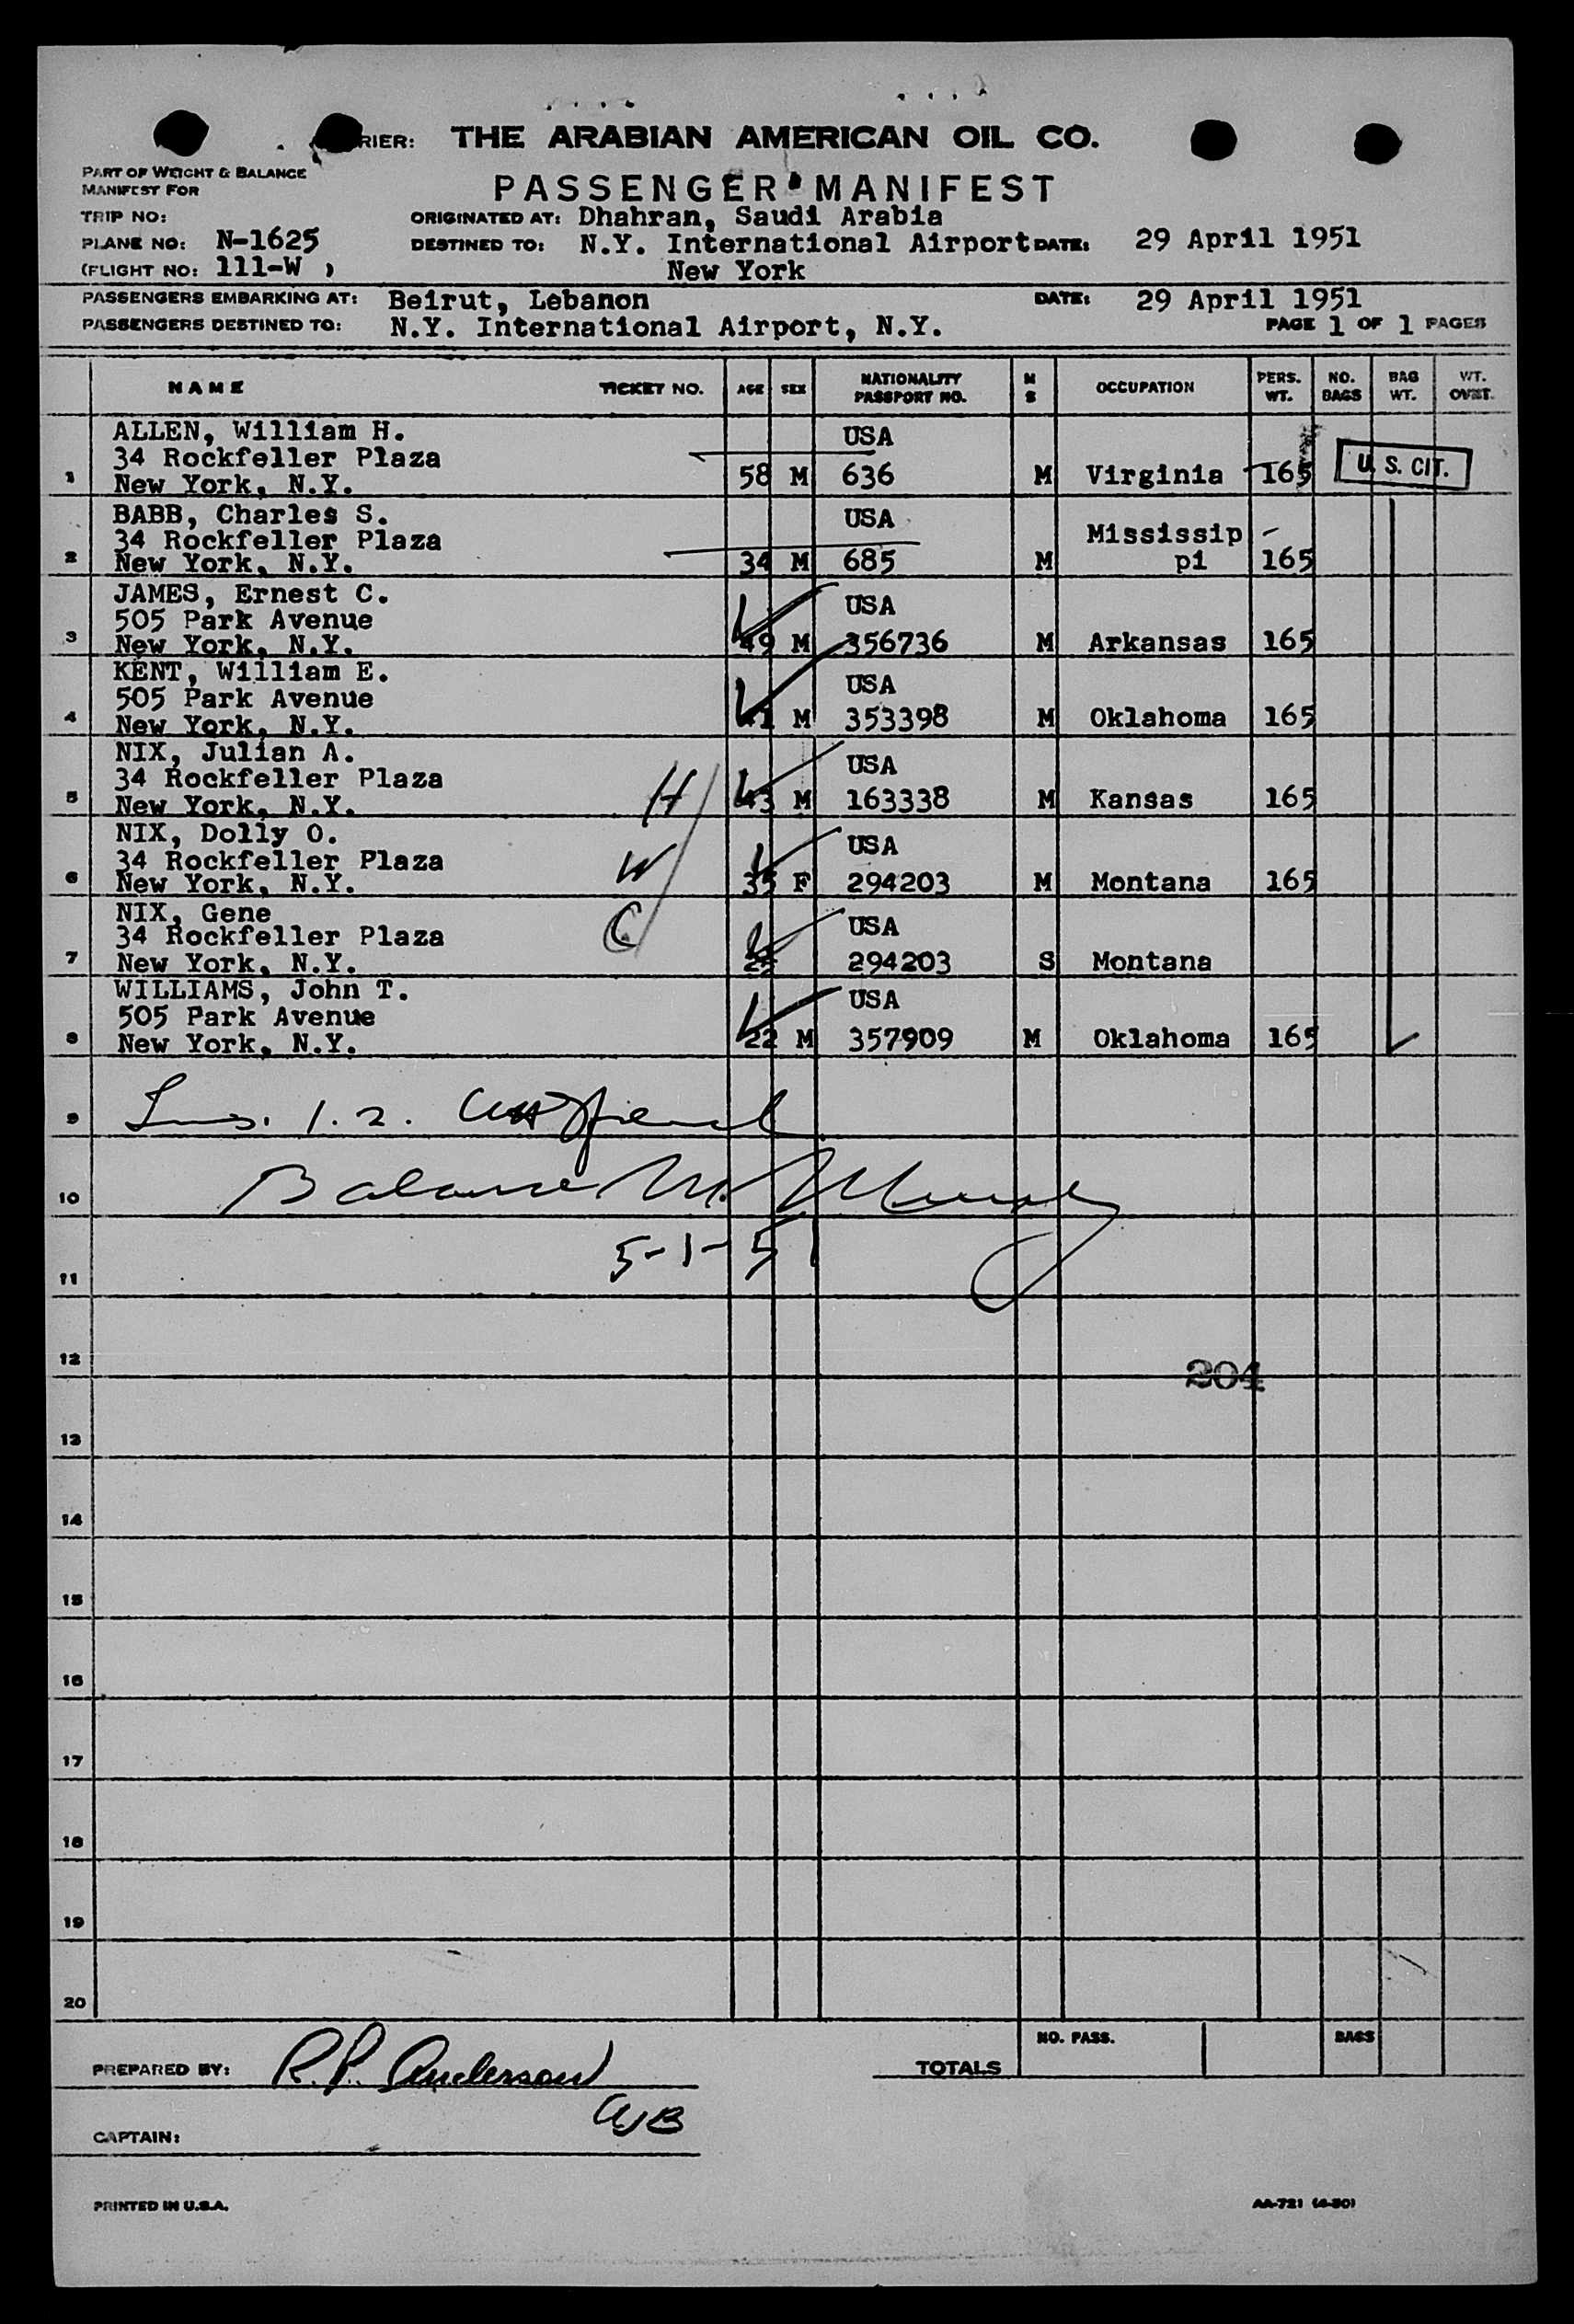 RIER: THE ARABIAN AMERICAN OIL CO.
PART OF WEIGHT & BALANCE
MANIFEST FOR
PASSENGER MANIFEST
TRIP NO:
ORIGINATED AT: Dhahran, Saudi Arabia
PLANE NO: N-1625 DESTINED TO: N.Y. International Airport DATE: 29 April 1951
(FLIGHT NO: 111-W ) New York
PASSENGERS EMBARKING AT: Beirut, Lebanon DATE: 29 April 1951
PASSENGERS DESTINED TO: N.Y. International Airport, N.Y. PAGE 1 OF 1 PAGES
NAME TICKET NO. AGE SEX NATIONALITY PASSPORT NO. M S OCCUPATION PERS. WT. NO. BAGS BAG WT. WT. OVET.
ALLEN, William H. USA
34 Rockfeller Plaza U. S. CIT.
1 New York, N.Y. 58 M 636 M Virginia 165
BABB, Charles S. USA
34 Rockfeller Plaza Mississip
2 New York, N.Y. 34 M 685 M pi 165
JAMES, Ernest C. USA
505 Park Avenue
3 New York, N.Y. 49 M 356736 M Arkansas 165
KENT, William E. USA
505 Park Avenue
4 New York, N.Y. M 353398 M Oklahoma 165
NIX, Julian A. USA
34 Rockfeller Plaza
5 New York, N.Y. H 43 M 163338 M Kansas 165
NIX, Dolly O. USA
34 Rockfeller Plaza
6 New York, N.Y. W 35 F 294203 M Montana 165
NIX, Gene USA
34 Rockfeller Plaza C
7 New York, N.Y. 294203 S Montana
WILLIAMS, John T. USA
505 Park Avenue
8 New York, N.Y. 22 M 357909 M Oklahoma 165
9 1. 2.
10 Balance
11 5-1-51
12 204
13
14
15
16
17
18
19
20
NO. PASS. BAGS
PREPARED BY: R.P. Anderson TOTALS
CAPTAIN:
PRINTED IN U.S.A. AA-721 (4-50)